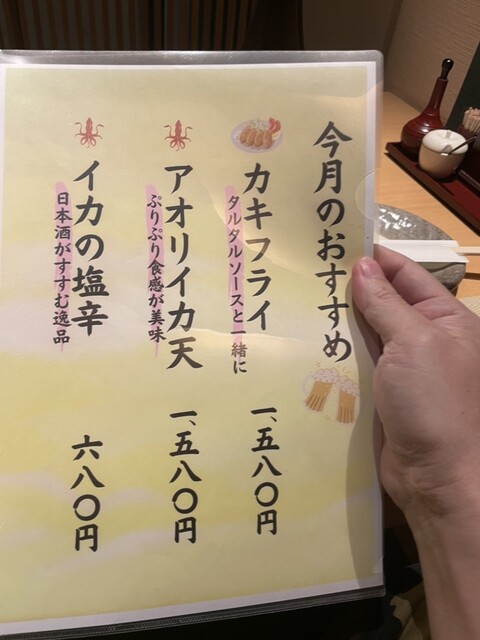 今月のおすすめ
カキフライ
タルタルソースと一緒に
一、五八〇円
アオリイカ天
ぷりぷり食感が美味
一、五八〇円
イカの塩辛
日本酒がすすむ逸品
六八〇円